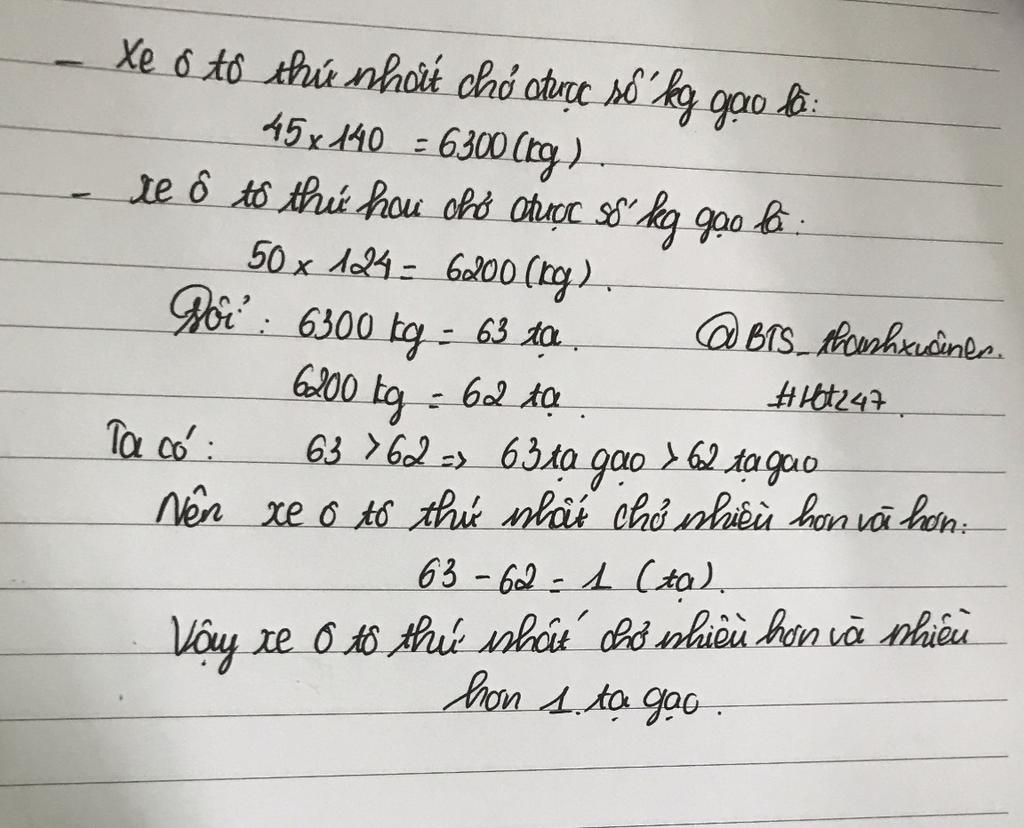 - Xe ô tô thứ nhất chở được số kg gạo là:
45 x 140 = 6300 (kg).
- xe ô tô thứ hai chở được số kg gạo là:
50 x 124 = 6200 (kg).
Đổi: 6300 kg = 63 tạ. @BTS_thanhxuân
6200 kg = 62 tạ.
Ta có: 63 > 62 => 63 tạ gạo > 62 tạ gạo
Nên xe ô tô thứ nhất chở nhiều hơn và hơn:
63 - 62 = 1 (tạ).
Vậy xe ô tô thứ nhất chở nhiều hơn và nhiều
hơn 1 tạ gạo.